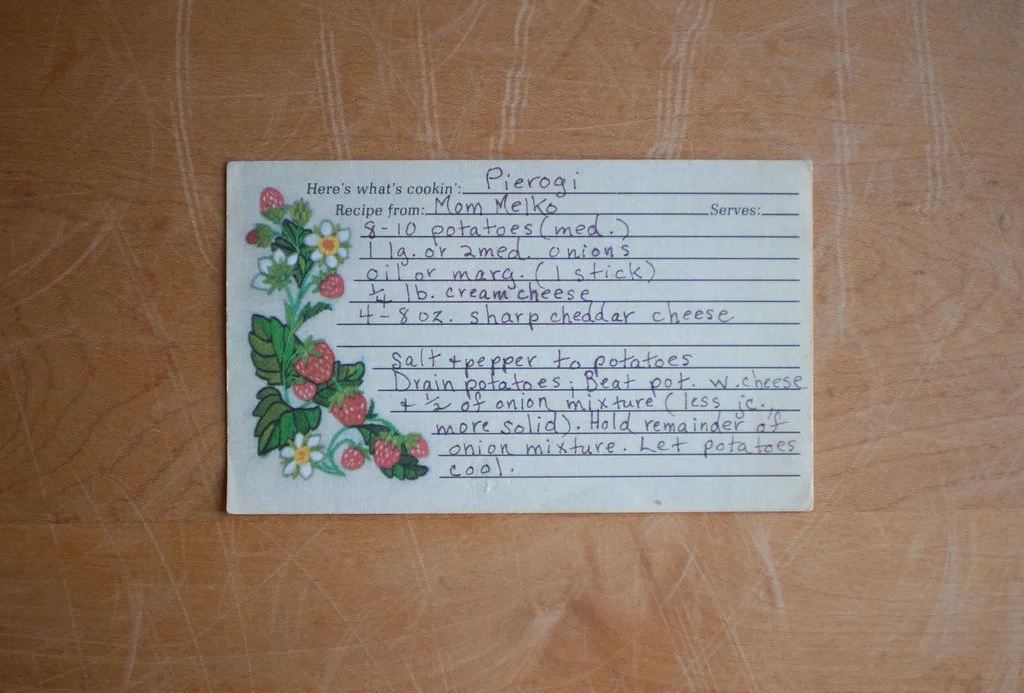 Here's what's cookin': Pierogi
Recipe from: Mom Melko Serves:
8-10 potatoes (med.)
1 lg. or 2 med. onions
oil or marg. (1 stick)
1/4 lb. cream cheese
4-8 oz. sharp cheddar cheese
Salt + pepper to potatoes
Drain potatoes; Beat pot. w. cheese
+ 1/2 of onion mixture (less jc.,
more solid). Hold remainder of
onion mixture. Let potatoes
cool.